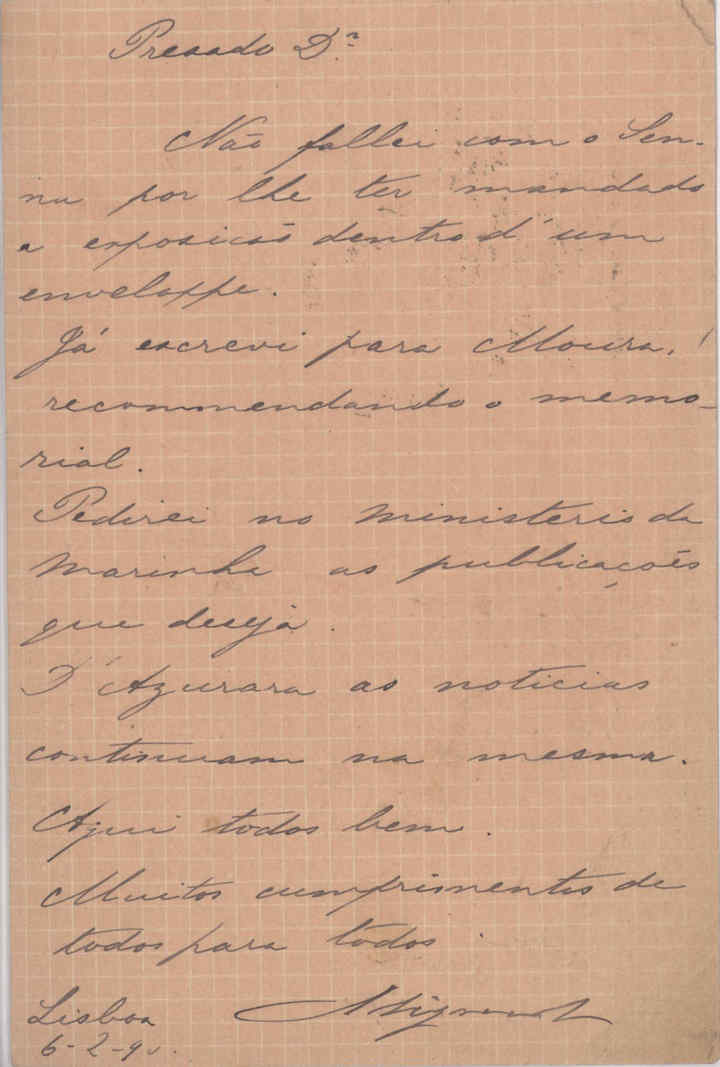 Presado Dr
Não fallei com o Sen-
na por lhe ter mandado
a exposicão dentro d'um
enveloppe.
Já escrevi para Moura,
recommendando o memo-
rial.
Pedirei no ministerio da
marinha as publicações
que deseja.
D'Azurara as noticias
continuam na mesma.
Aqui todos bem.
Muitos cumprimentos de
todos para todos.
Lisboa
6-2-90.